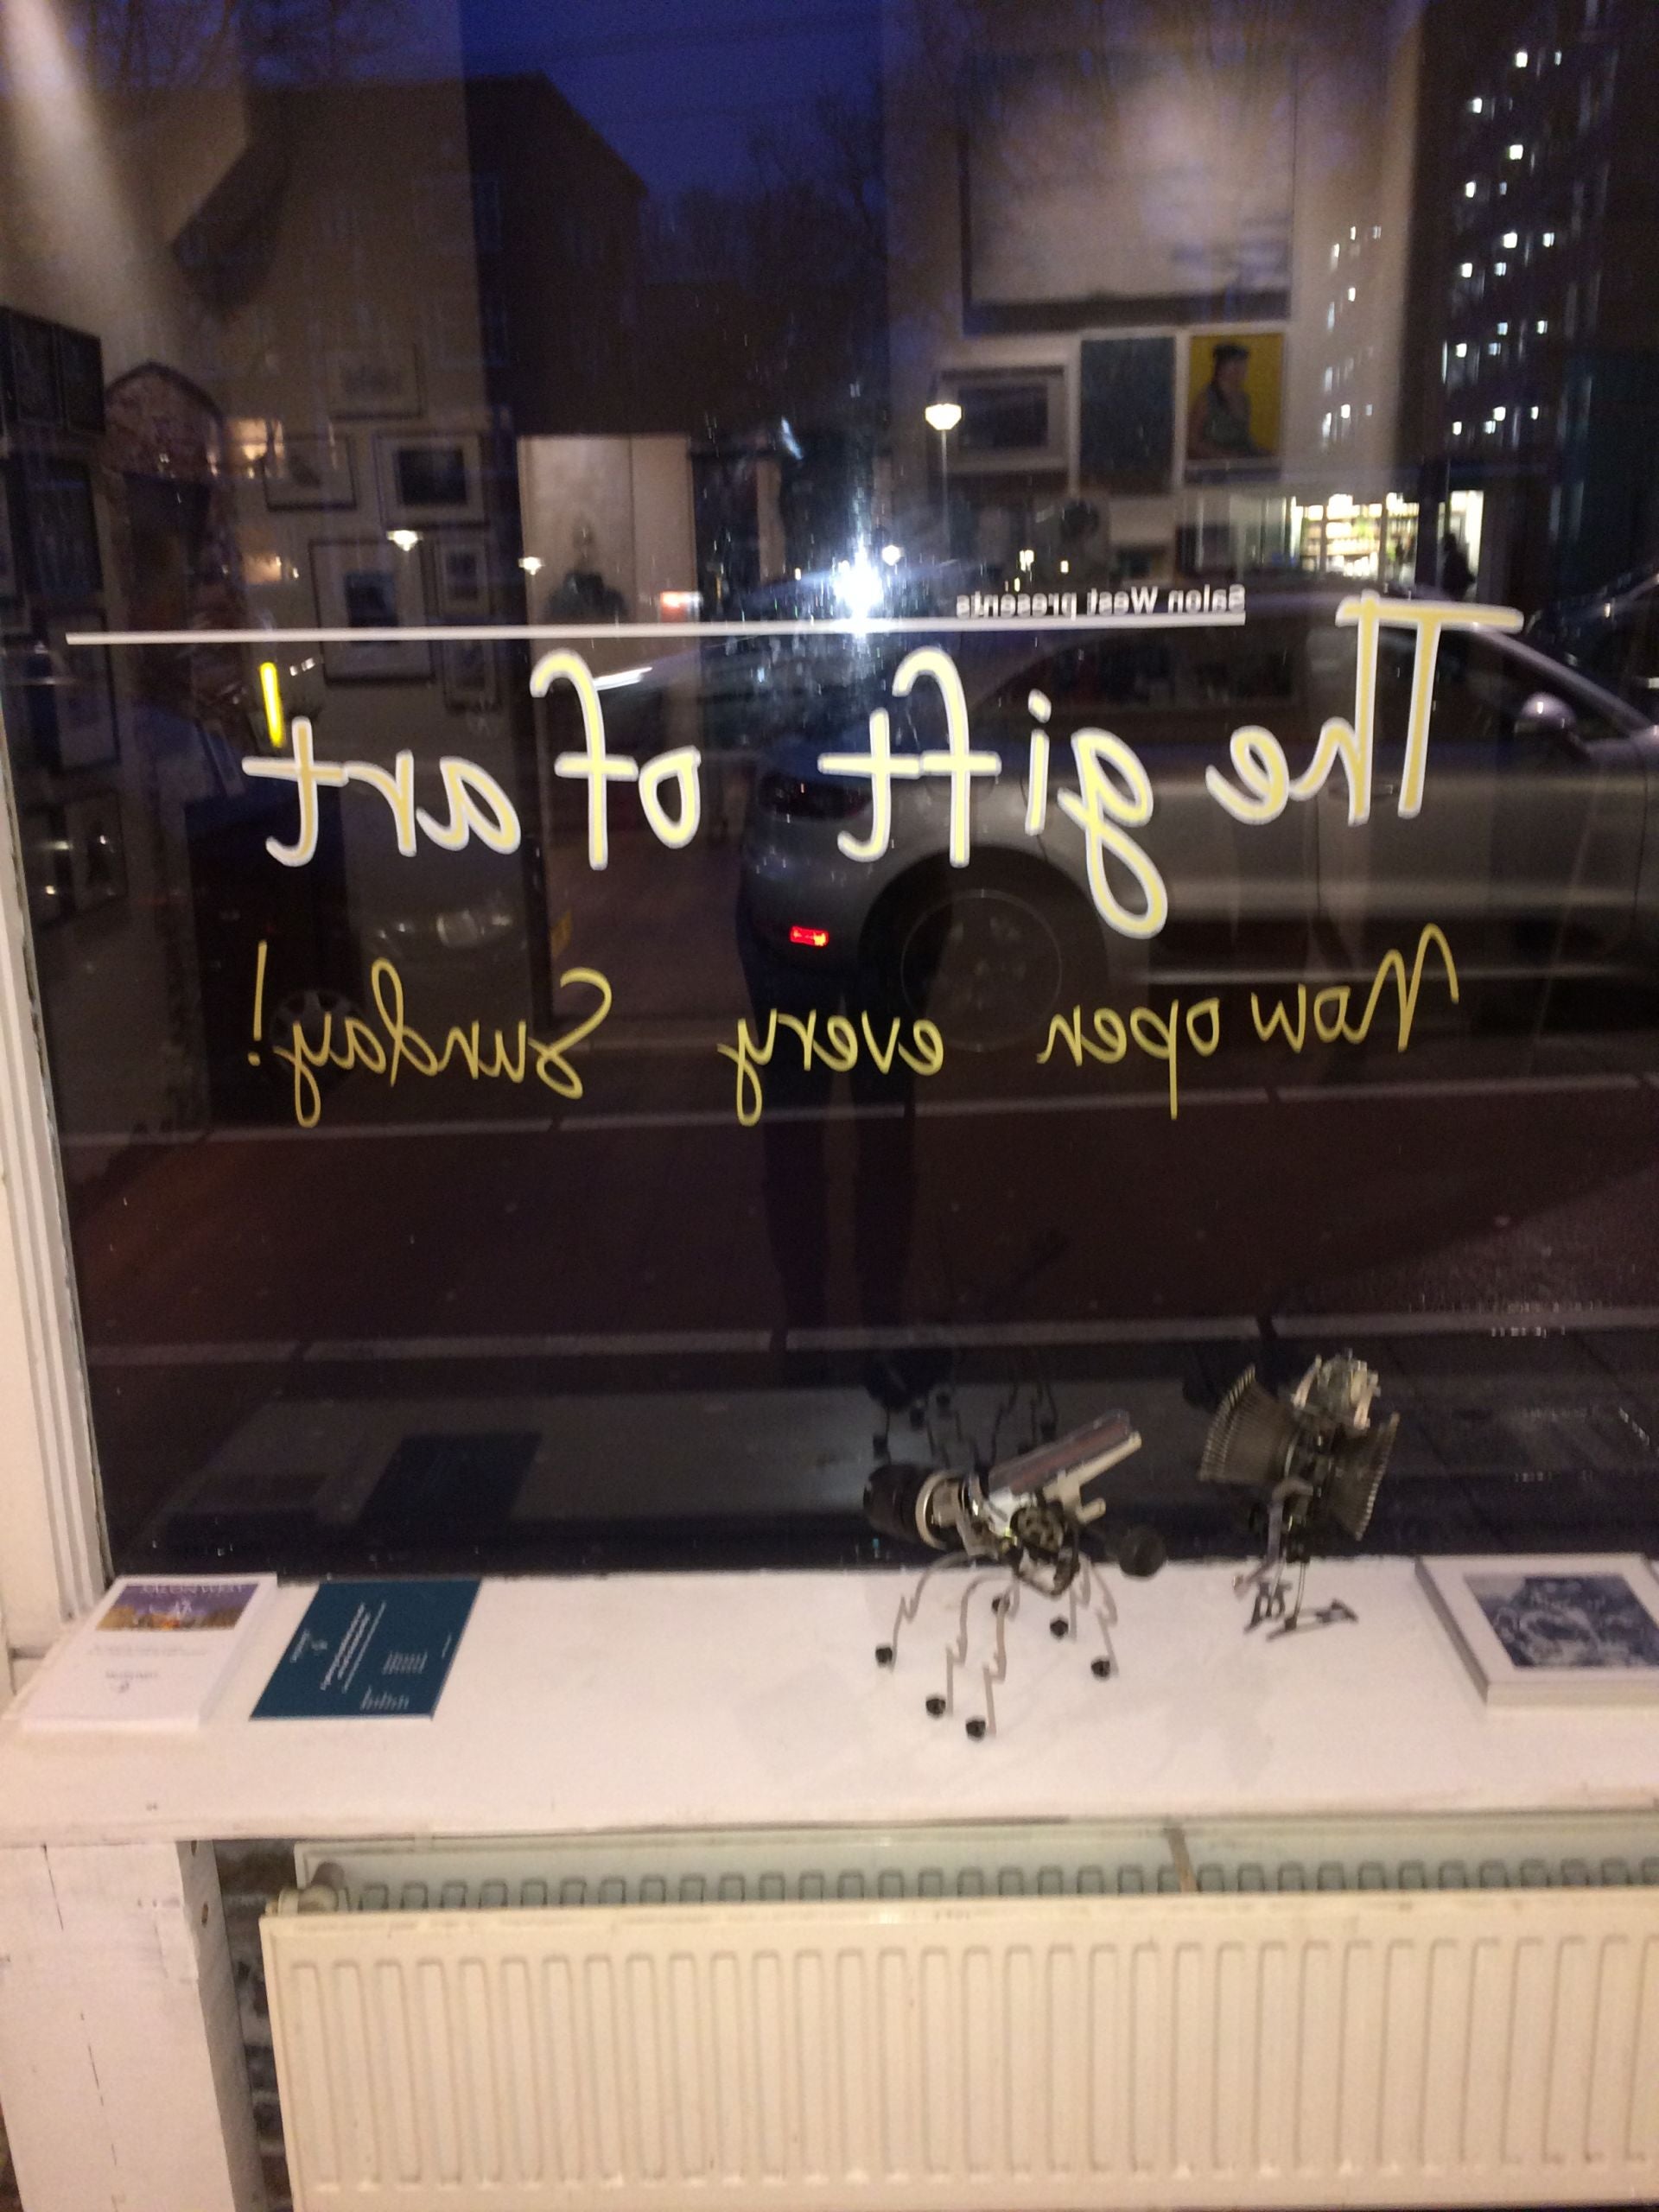 Salon West presents
The gift of art
Now open every Sunday!